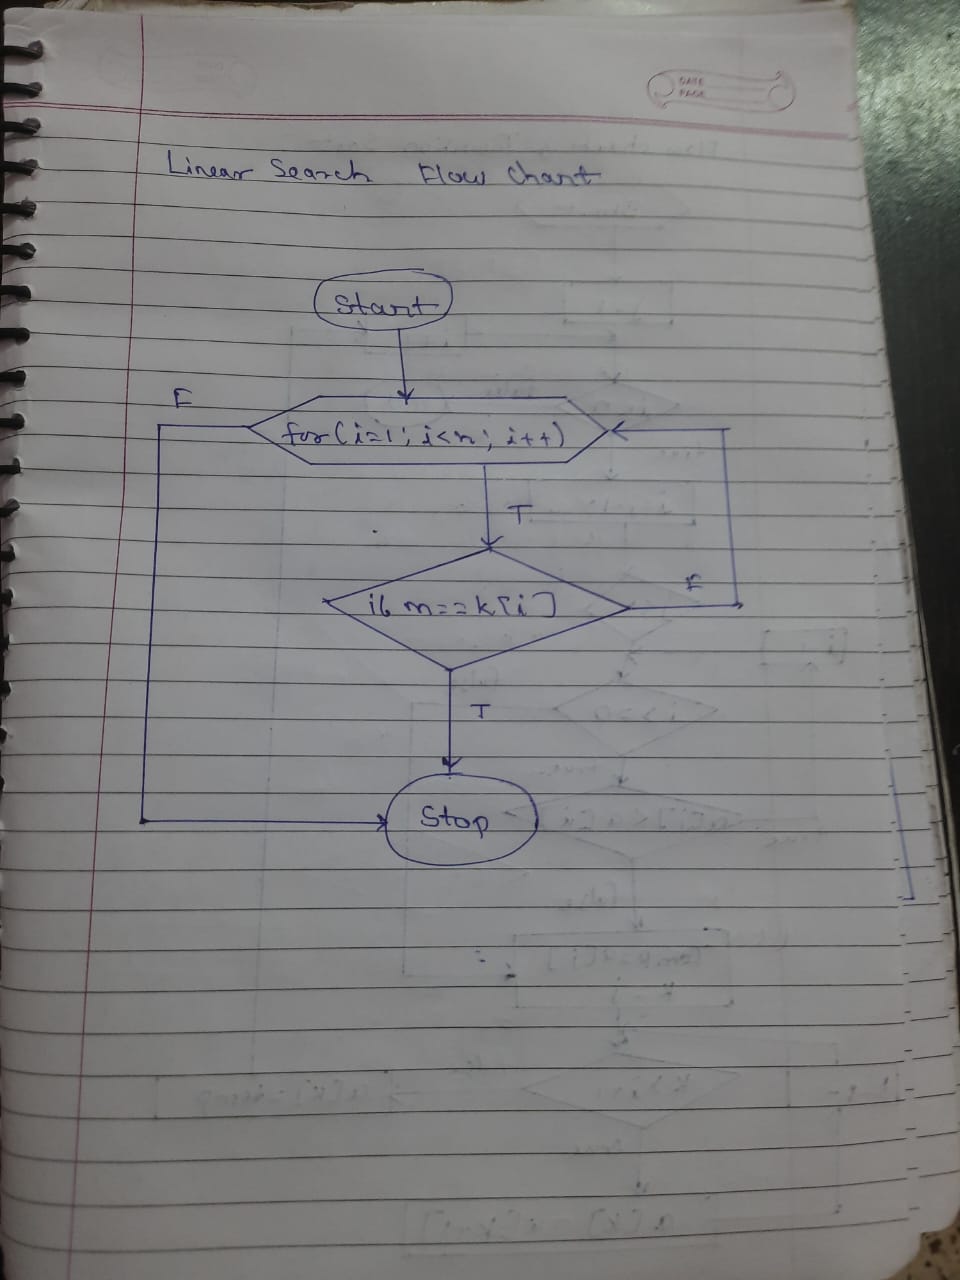 DATE
PAGE
Linear Search Flow Chart
Start
F
for(i=1; i<n; i++)
T
if m==k[i]
F
T
Stop